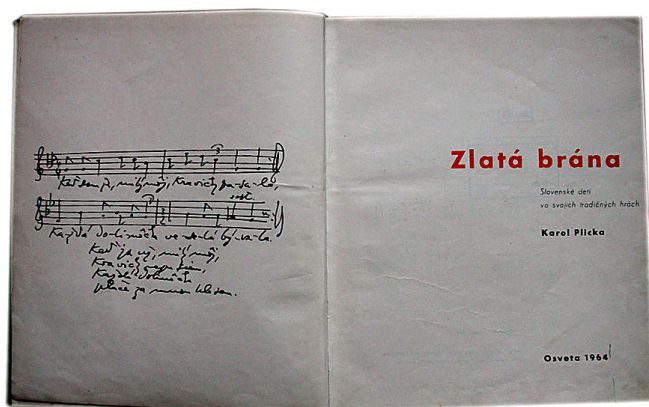 Keď som ja, milý môj, kravičky pa-sa-la,
Každá do-linôčka ve-se-lá bý-va-la.
Keď ja už, milý môj,
Kravičky
Každá dolinôčka
plače za mnou
Zlatá brána
Slovenské deti
vo svojich tradičných hrách
Karol Plicka
Osveta 1964